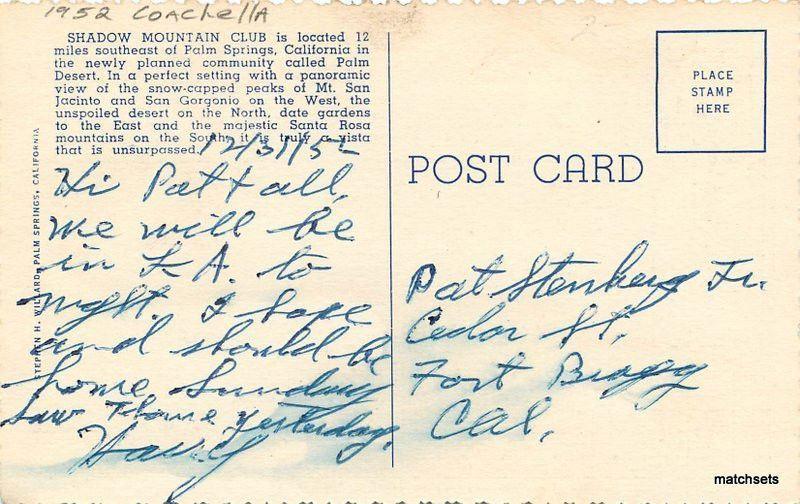 1952 Coachella
SHADOW MOUNTAIN CLUB is located 12
miles southeast of Palm Springs, California in
the newly planned community called Palm
Desert. In a perfect setting with a panoramic
view of the snow-capped peaks of Mt. San
Jacinto and San Gorgonio on the West, the
unspoiled desert on the North, date gardens
to the East and the majestic Santa Rosa
mountains on the South, it is truly a vista
that is unsurpassed.
12/31/52
Hi Pat & all,
we will be
in L.A. to
night. I hope
and should be
home Sunday
saw yesterday.
Harry
STEPHEN H. WILLARD, PALM SPRINGS, CALIFORNIA
POST CARD
PLACE
STAMP
HERE
Pat Stenberg Jr.
Cedar St,
Fort Bragg
Cal,
matchsets